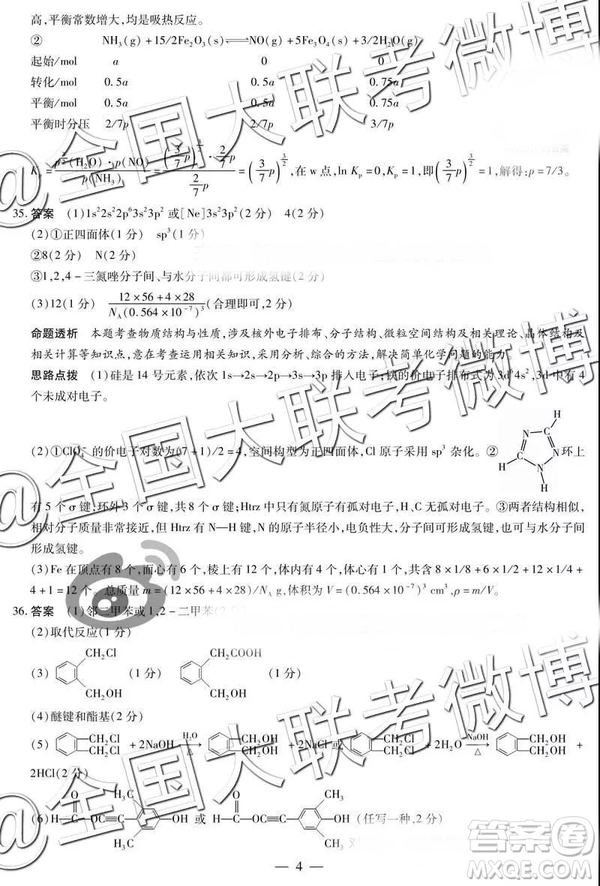 高,平衡常数增大,均是吸热反应。
② NH₃(g)+15/2Fe₂O₃(s)⇌NO(g)+5Fe₃O₄(s)+3/2H₂O(g)
起始/mol a 0 0
转化/mol 0.5a 0.5a 0.75a
平衡/mol 0.5a 0.5a 0.75a
平衡时分压 2/7p 2/7p 3/7p
在 w 点,ln Kₚ=0,Kₚ=1,即(3/7 p)^(3/2)=1,解得:p=7/3。
35.答案 (1)1s²2s²2p⁶3s²3p² 或[Ne]3s²3p²(2分) 4(2分)
(2)①正四面体(1分) sp³(1分)
②8(2分) N(2分)
③1,2,4-三氮唑分子间、与水分子间都可形成氢键(2分)
(3)12(1分) (12×56+4×28)/(N_A(0.564×10⁻⁷)³)(合理即可,2分)
命题透析 本题考查物质结构与性质,涉及核外电子排布、分子结构、微粒空间结构及相关理论、晶体结构及
相关计算等知识点,意在考查运用相关知识,采用分析、综合的方法,解决简单化学问题的能力。
思路点拨 (1)硅是14号元素,依次 1s→2s→2p→3s→3p 排入电子;铁的价电子排布式为3d⁶4s²,3d中有4
个未成对电子。
(2)①的价电子对数为(7+1)/2=4,空间构型为正四面体,Cl原子采用 sp³ 杂化。② H C N N C H N H 环上
有5个σ键,环外3个σ键,共8个σ键;Htrz中只有氮原子有孤对电子,H、C无孤对电子。③两者结构相似,
相对分子质量非常接近,但Htrz有N—H键,N的原子半径小,电负性大,分子间可形成氢键,也可与水分子间
形成氢键。
(3)Fe在顶点有8个,面心有6个,棱上有12个,体内有4个,体心有1个,共有8×1/8+6×1/2+12×1/4+
4+1=12个。总质量m=(12×56+4×28)/N_A g,体积为V=(0.564×10⁻⁷)³ cm³,ρ=m/V。
36.答案 (1)邻二甲苯或1,2-二甲苯
(2)取代反应(1分)
(3) CH₂Cl CH₂OH (1分) CH₂COOH CH₂OH (1分)
(4)醚键和酯基(2分)
(5) CH₂Cl CH₂Cl +2NaOH H₂O △ CH₂OH CH₂OH +2NaCl 或 CH₂Cl CH₂Cl +2H₂O NaOH △ CH₂OH CH₂OH +
2HCl(2分)
(6) CH₃ OH CH₃ 或 CH₃ OH CH₃ (任写一种,2分)
— 4 —
@全国大联考微博
@全国大联考微博
@全国大联考微博
答案圈
MXQE.COM